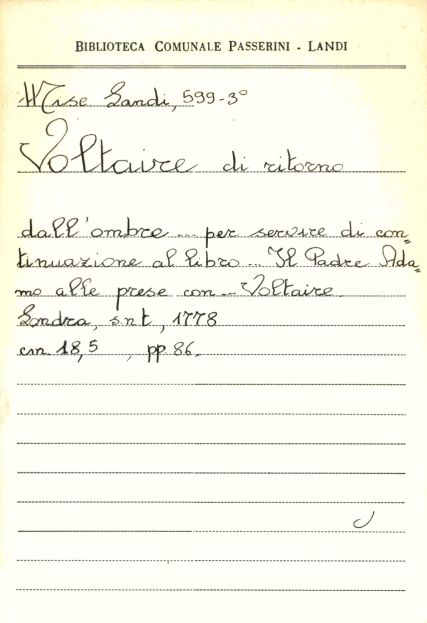 BIBLIOTECA COMUNALE PASSERINI - LANDI
Misc Landi, 599-3°
Voltaire di ritorno
dall'ombre ... per servire di con=
tinuazione al libro ... Il Padre Ada=
mo alle prese con ... Voltaire.
Londra, s.n.t, 1778
cm. 18,5 , pp. 86.